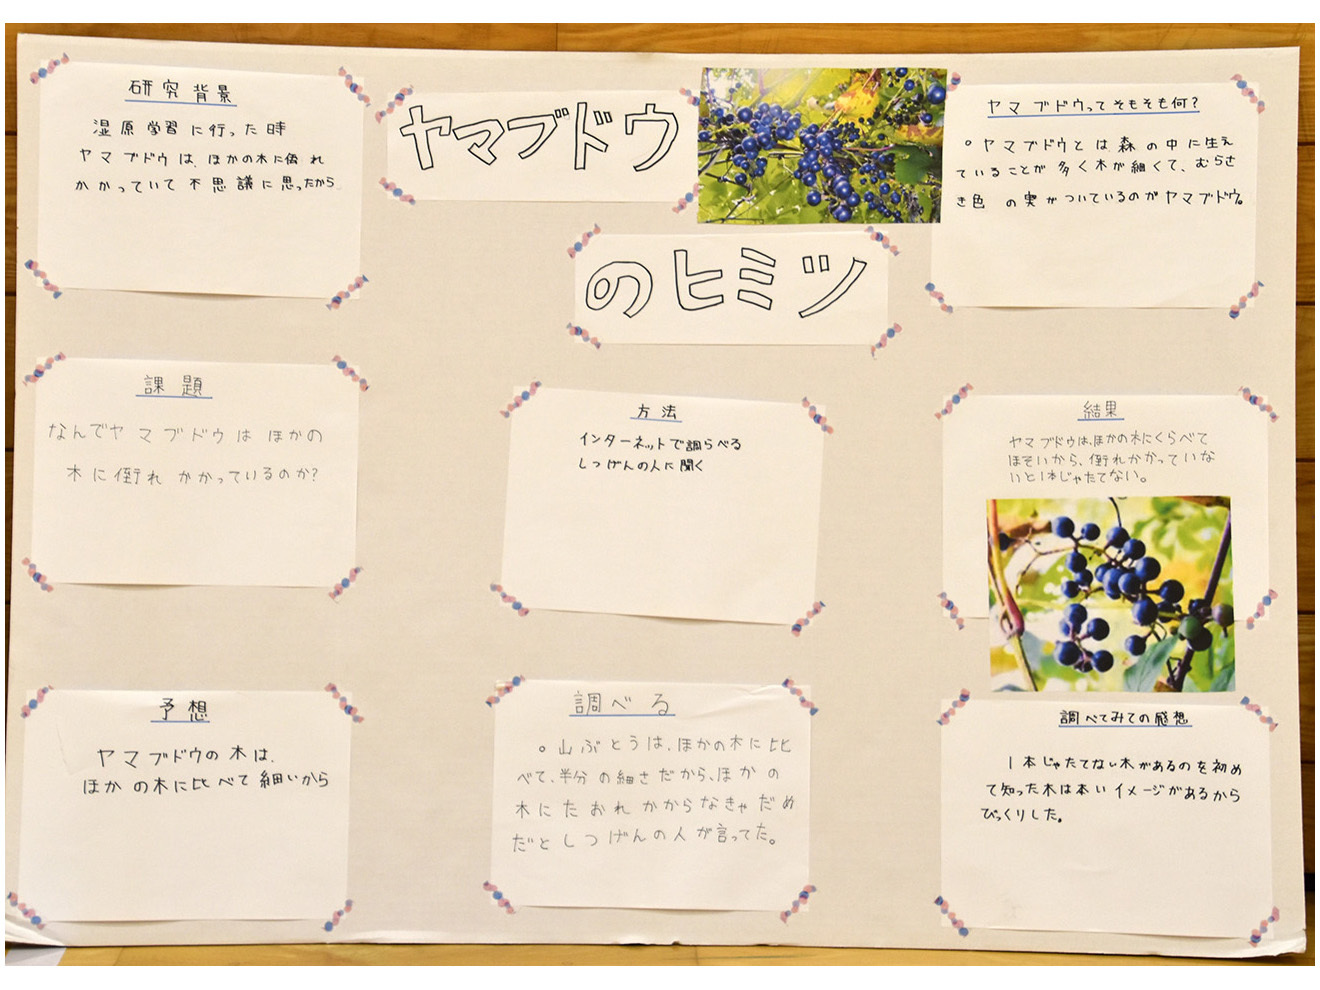 ヤマブドウ
のヒミツ
研究背景
湿原学習に行った時
ヤマブドウは、ほかの木に倒れ
かかっていて不思議に思ったから
ヤマブドウってそもそも何?
。ヤマブドウとは森の中に生え
ていることが多く木が細くて、むらさ
き色の実がついているのがヤマブドウ。
課題
なんでヤマブドウはほかの
木に倒れかかっているのか?
方法
インターネットで調らべる
しつげんの人に聞く
結果
ヤマブドウは、ほかの木にくらべて
ほそいから、倒れかかっていな
いと1本じゃたてない。
予想
ヤマブドウの木は、
ほかの木に比べて細いから
調べる
。山ぶとうは、ほかの木に比
べて、半分の細さだから、ほかの
木にたおれかからなきゃだめ
だとしつげんの人が言ってた。
調べてみての感想
1本じゃたてない木があるのを初め
て知った木は本いイメージがあるから
びっくりした。